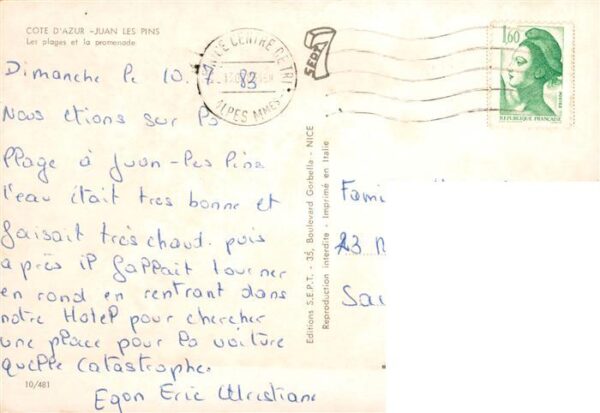 COTE D'AZUR - JUAN LES PINS
Les plages et la promenade
Dimanche le 10. 7 83
Nous etions sur la
plage à Juan-les Pins
l'eau était très bonne et
faisait très chaud. puis
après il fallait tourner
en rond en rentrant dans
notre Hotel pour chercher
une place pour la voiture
quelle catastrophe.
Egon Eric Christiane
10/481
Editions S.E.P.T. - 35, Boulevard Gorbella - NICE
Reproduction interdite - Imprimé en Italie
SEPT
NICE CENTRE DE TRI
ALPES MMES
1,60
REPUBLIQUE FRANCAISE
Fami
23
Sa